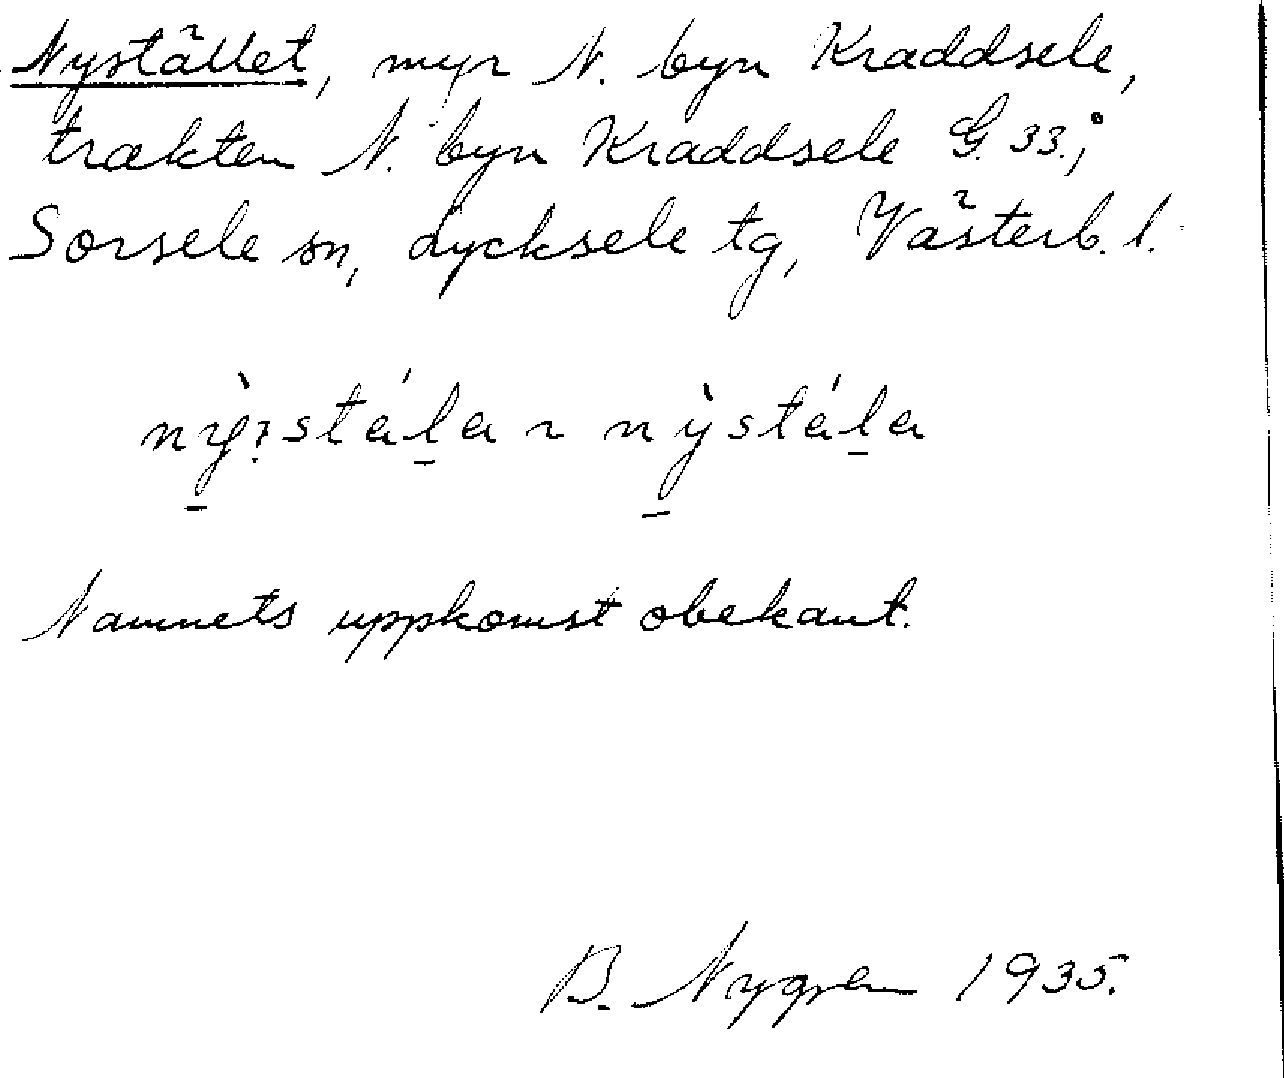 Nystället, myr N. byn Kraddsele,
trakten N. byn Kraddsele G. 33.;
Sorsele sn, Lycksele tg, Västerb. l.
nỳ:stála ~ nỳstála
Namnets uppkomst obekant.
B. Nygren 1935.